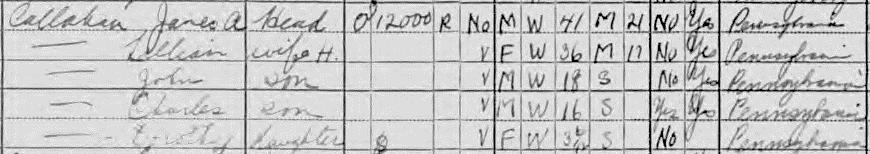 Callahan James A Head O 12000 R No M W 41 M 21 No Yes Pennsylvania
— Lillian wife H. V F W 36 M 17 No Yes Pennsylvania
— John son V M W 18 S No Yes Pennsylvania
— Charles son V M W 16 S Yes Yes Pennsylvania
— Dorothy daughter V F W S No Pennsylvania